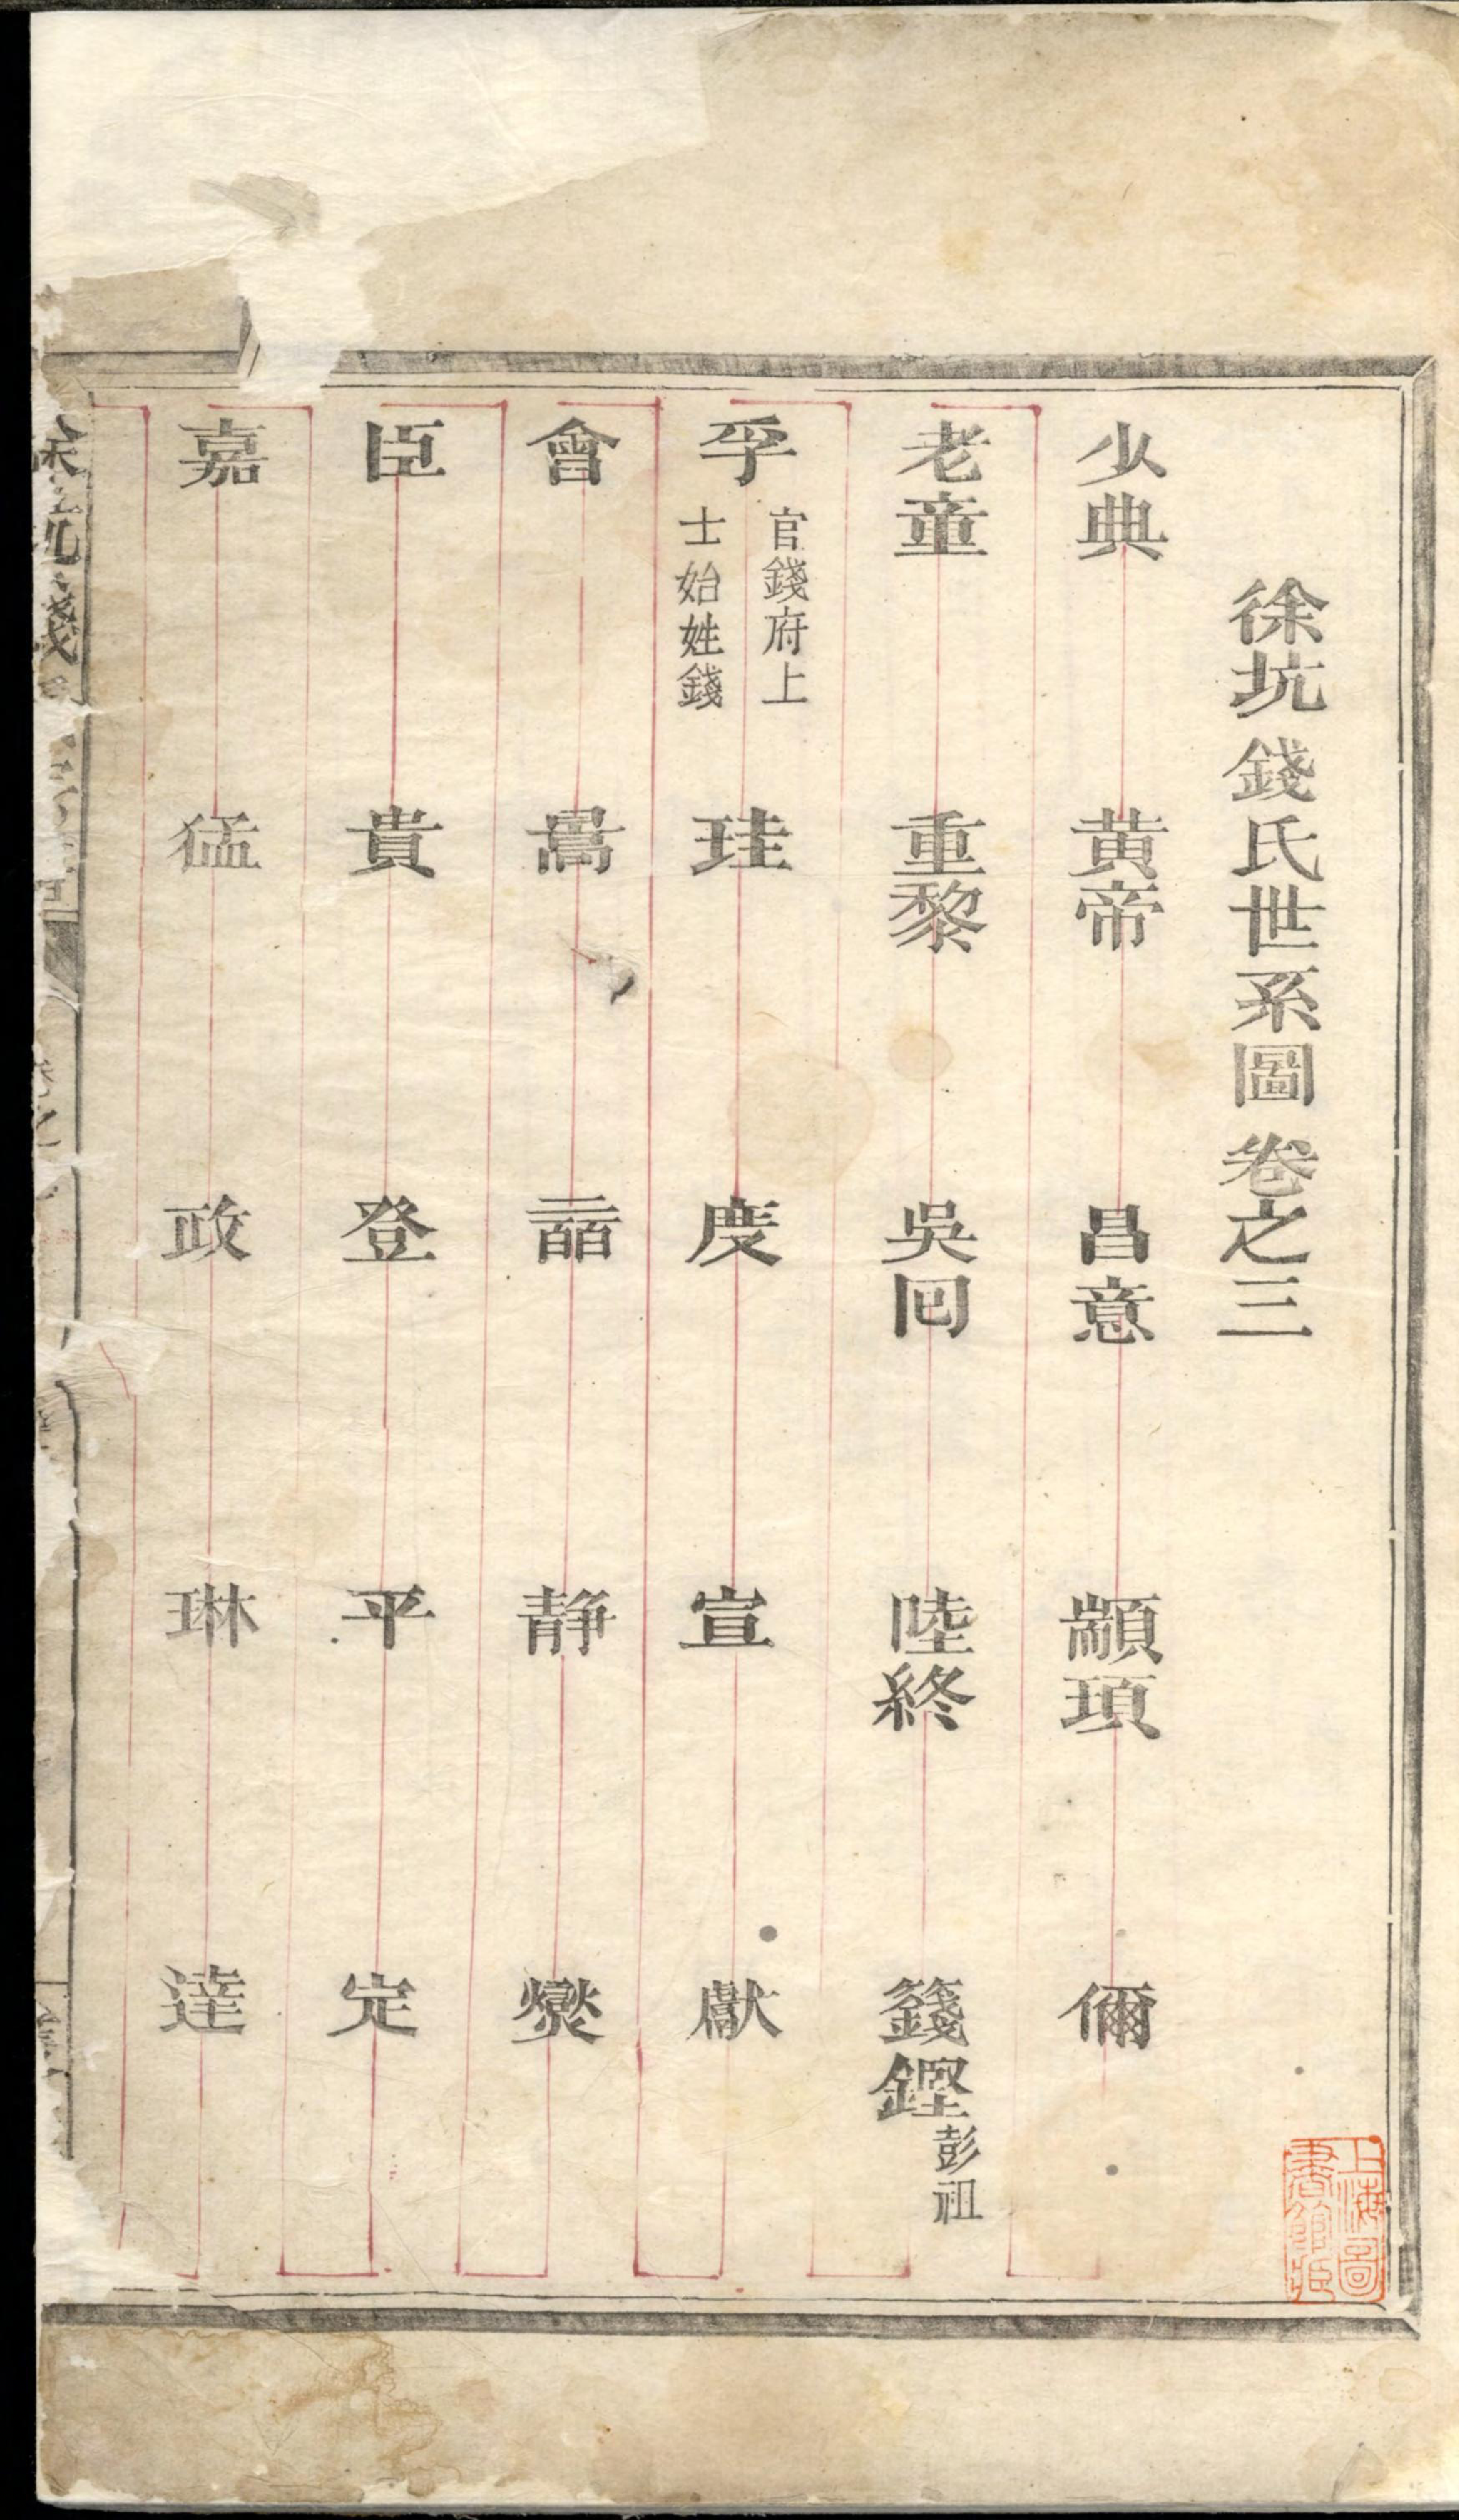 徐坑錢氏世系圖卷之三
少典 黄帝 昌意 顓頊 偁
老童 重黎 吳回 陸終 籛鏗彭祖
孚 官錢府上
士始姓錢 珪 度 宣 獻
會 靜 爕
臣 貴 登 平 定
嘉 猛 政 琳 達
上海圖
書館藏